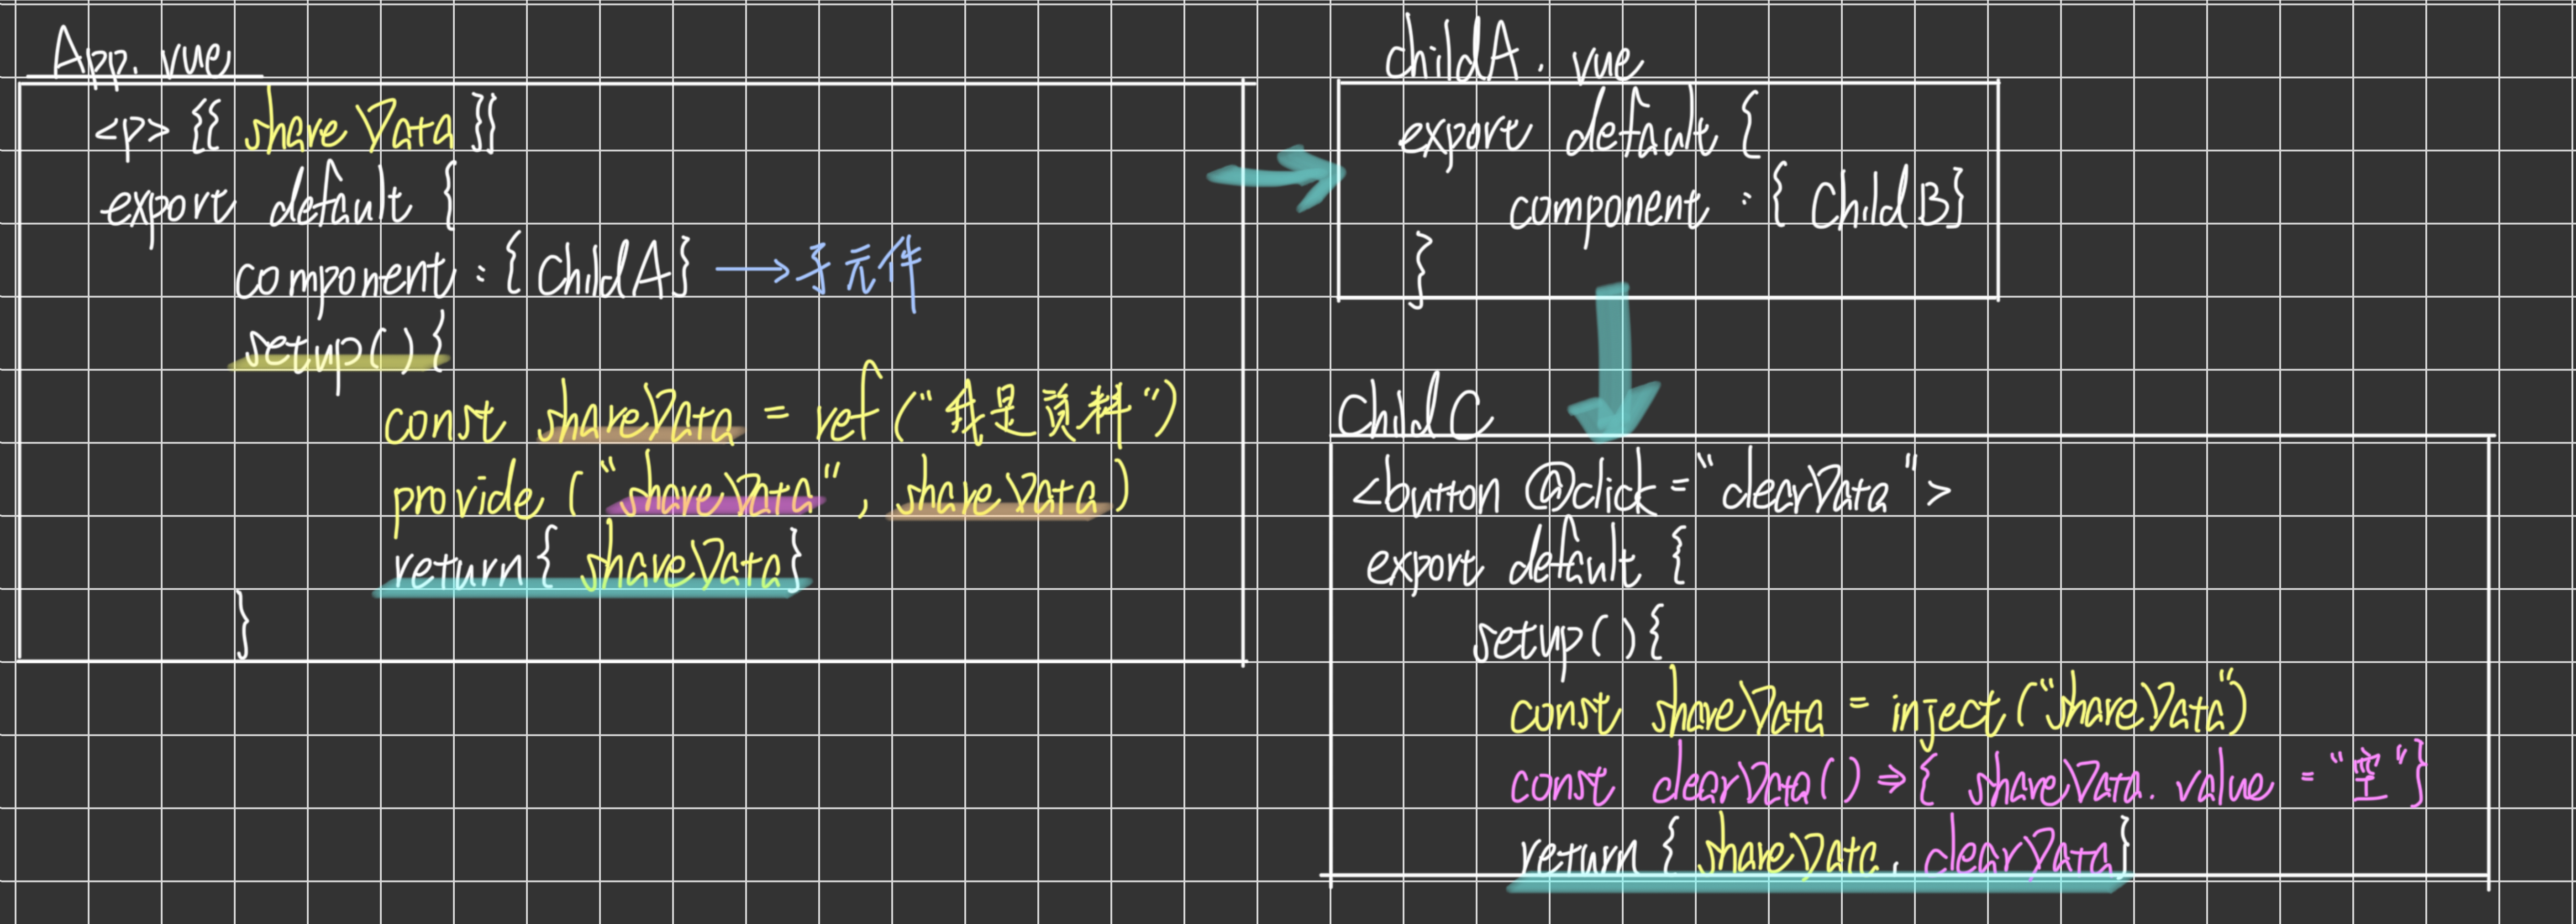 App. vue
<p> {{ share Data }}
export default {
component : { ChildA } → 子元件
setup() {
const shareData = ref ("我是資料")
provide ("shareData", shareData)
return { shareData }
}
childA. vue
export default {
component : { Child B }
}
Child C
<button @click = "clearData" >
export default {
setup() {
const shareData = inject ("shareData")
const clearData () => { shareData. value = "空" }
return { shareData, clearData }